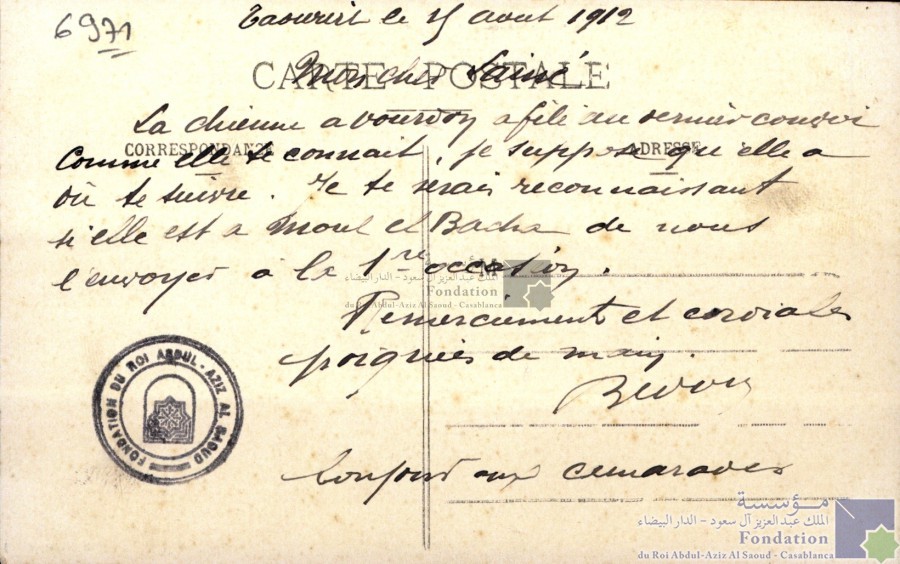 6971
Taourirt le 15 aout 1912
CARTE POSTALE
Mon cher Lainé
La chienne a Bourdon a filé au dernier convoi
CORRESPONDANCE
ADRESSE
comme elle te connait, je suppose qu'elle a
dû te suivre. Je te serais reconnaissant
si elle est a Moul el Bacha de nous
l'envoyer à la 1re occasion.
مؤسسة
الملك عبد العزيز آل سعود - الدار البيضاء
Fondation
du Roi Abdul-Aziz Al Saoud - Casablanca
Remerciements et cordiales
poignées de main.
FONDATION DU ROI ABDUL-AZIZ AL SAOUD
Bonjour aux camarades
مؤسسة
الملك عبد العزيز آل سعود - الدار البيضاء
Fondation
du Roi Abdul-Aziz Al Saoud - Casablanca